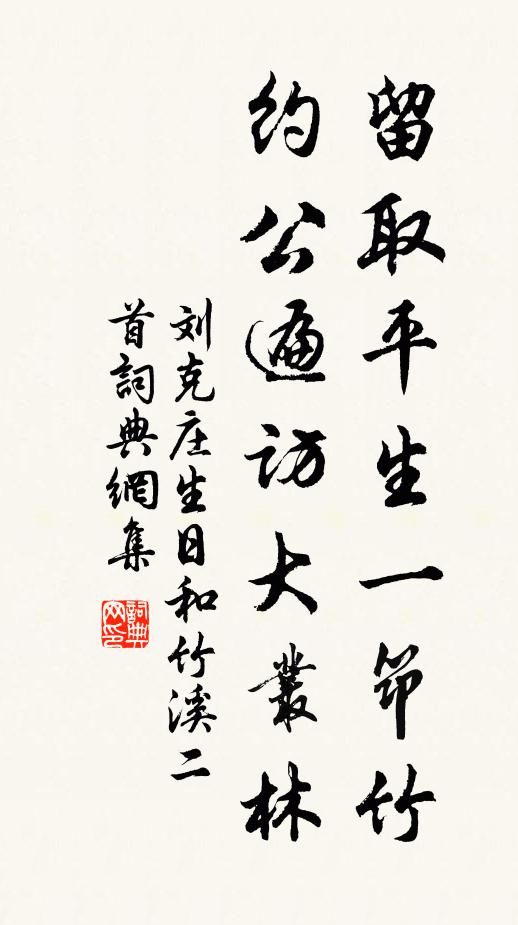 留取平生一筇竹
約公遍訪大叢林
刘克庄生日和竹溪二
首詞典網集
詞典
网印